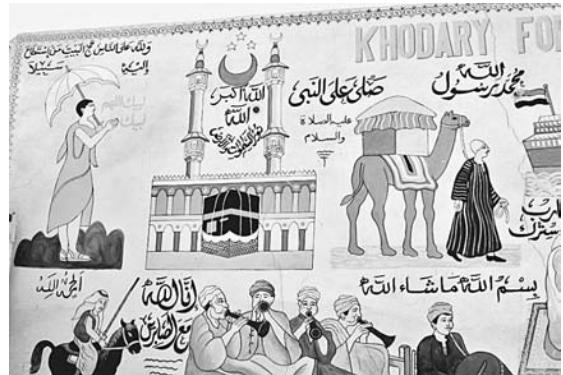 KHODARY FO
ولله على الناس حج البيت من إستطاع
إليه سبيلا
لبيك اللهم
لبيك
الله أكبر
الله
صلى على النبي
عليه الصلاة
والسلام
محمد رسول الله
الحمد لله
إن الله
مع الصابرين
بسم الله ماشاء الله